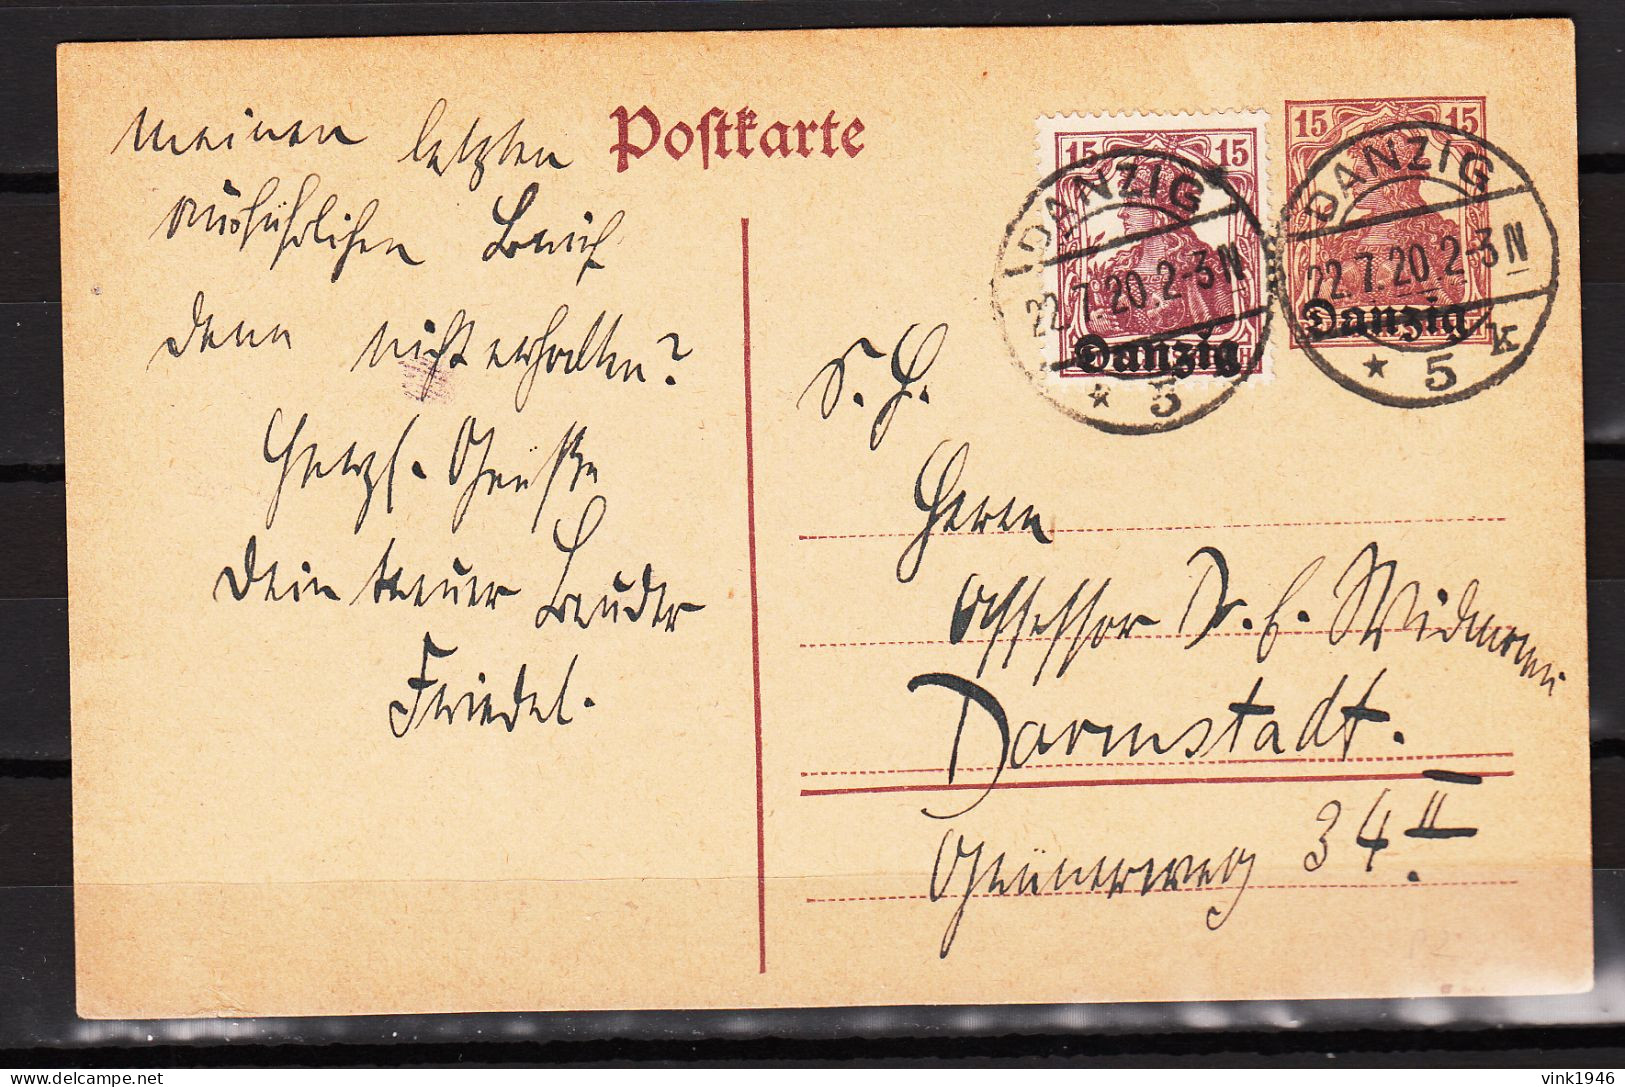 Postkarte
meinen letzten
ausführlichen Brief
denn nicht erhalten?
Herzl. Grüße
Dein treuer Bruder
Friedel.
15 15
DANZIG
22.7.20.2-3N
Danzig
* 5
15 15
DANZIG
22.7.20.2-3N
Danzig
* 5 k
S. H.
Herrn
Assessor Dr. E. Widmann
Darmstadt.
Grünerweg 34 II
vink1946